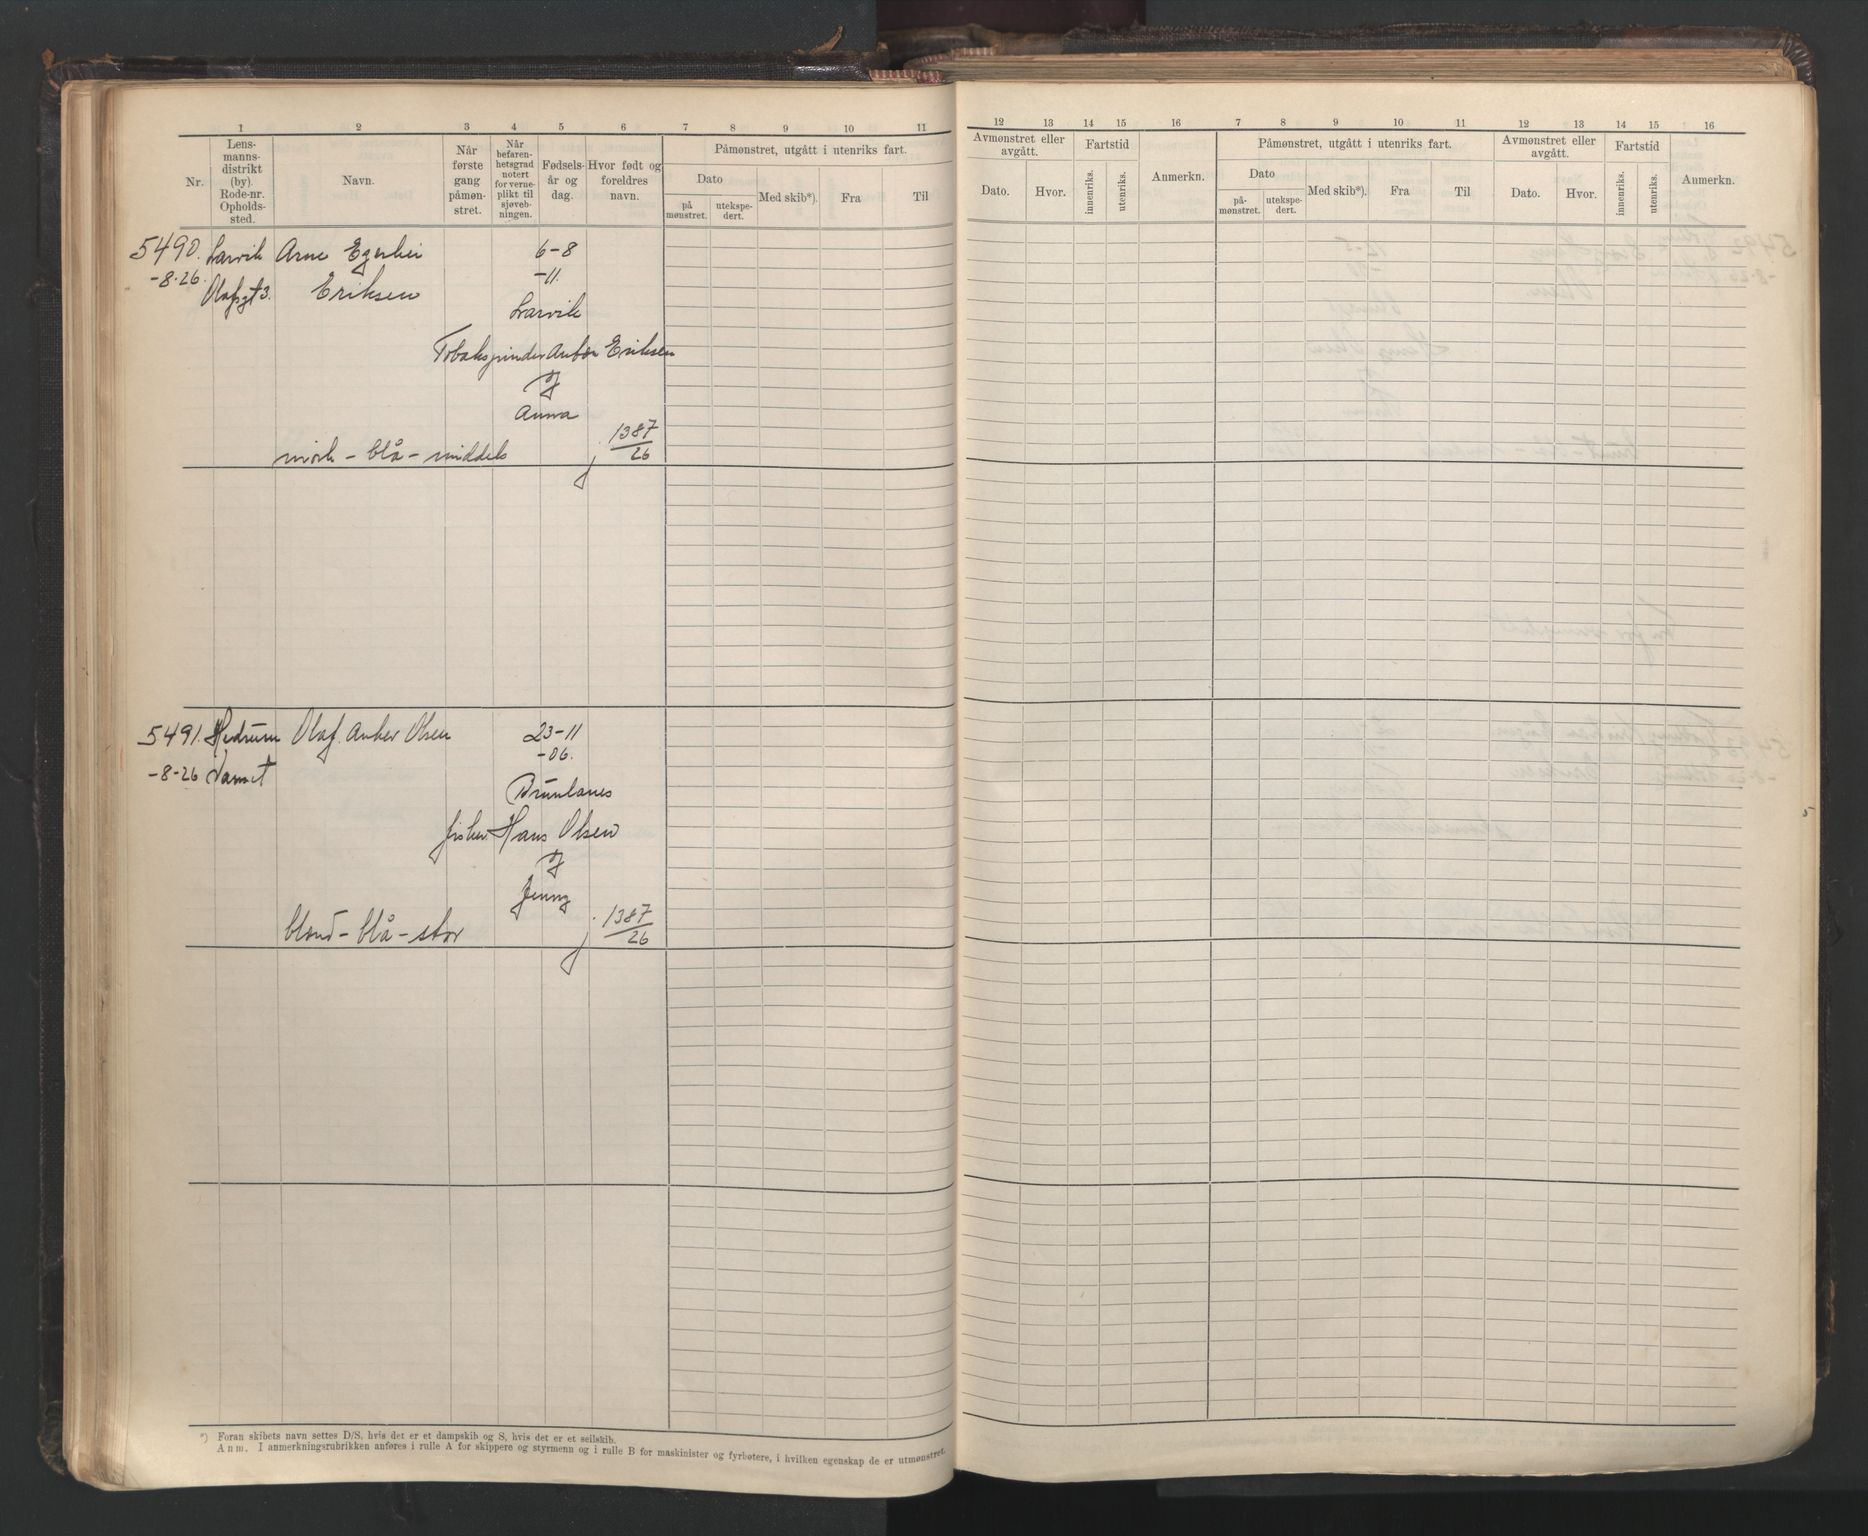 1 2 3 4 5 6 7 8 9 10 11
Nr.
Lens-
manns-
distrikt
(by).
Rode-nr.
Opholds-
sted.
Navn.
Når
første
gang
påmøn-
stret.
Når
befaren-
hetsgrad
notert
for verne-
plikt til
sjøveb-
ningen.
Fødsels-
år og
dag.
Hvor født og
foreldres
navn.
Påmønstret, utgått i utenriks fart.
Dato
på
mønstret.
utekspe-
dert.
Med skib*).
Fra
Til
5490. Larvik Arne Egerhei 6-8
-8-26. Olafsgt 3. Eriksen -11.
Larvik
Eriksen
og
Anna
mørk - blå - middels j. 1387/26
5491. Hedrum Olaf Anker Olsen 23-11
-8-26 -06.
Brunlanes
fisker Hans Olsen
og
Jenny
blond - blå - stor j. 1387/26
*) Foran skibets navn settes D/S, hvis det er et dampskib og S, hvis det er et seilskib.
Anm. I anmerkningsrubrikken anføres i rulle A for skippere og styrmenn og i rulle B for maskinister og fyrbøtere, i hvilken egenskap de er utmønstret.
12 13 14 15 16 7 8 9 10 11 12 13 14 15 16
Avmønstret eller
avgått.
Dato.
Hvor.
Fartstid
innenriks.
utenriks.
Anmerkn.
Påmønstret, utgått i utenriks fart.
Dato
på-
mønstret.
utekspe-
dert.
Med skib*).
Fra
Til
Avmønstret eller
avgått.
Dato.
Hvor.
Fartstid
innenriks.
utenriks.
Anmerkn.